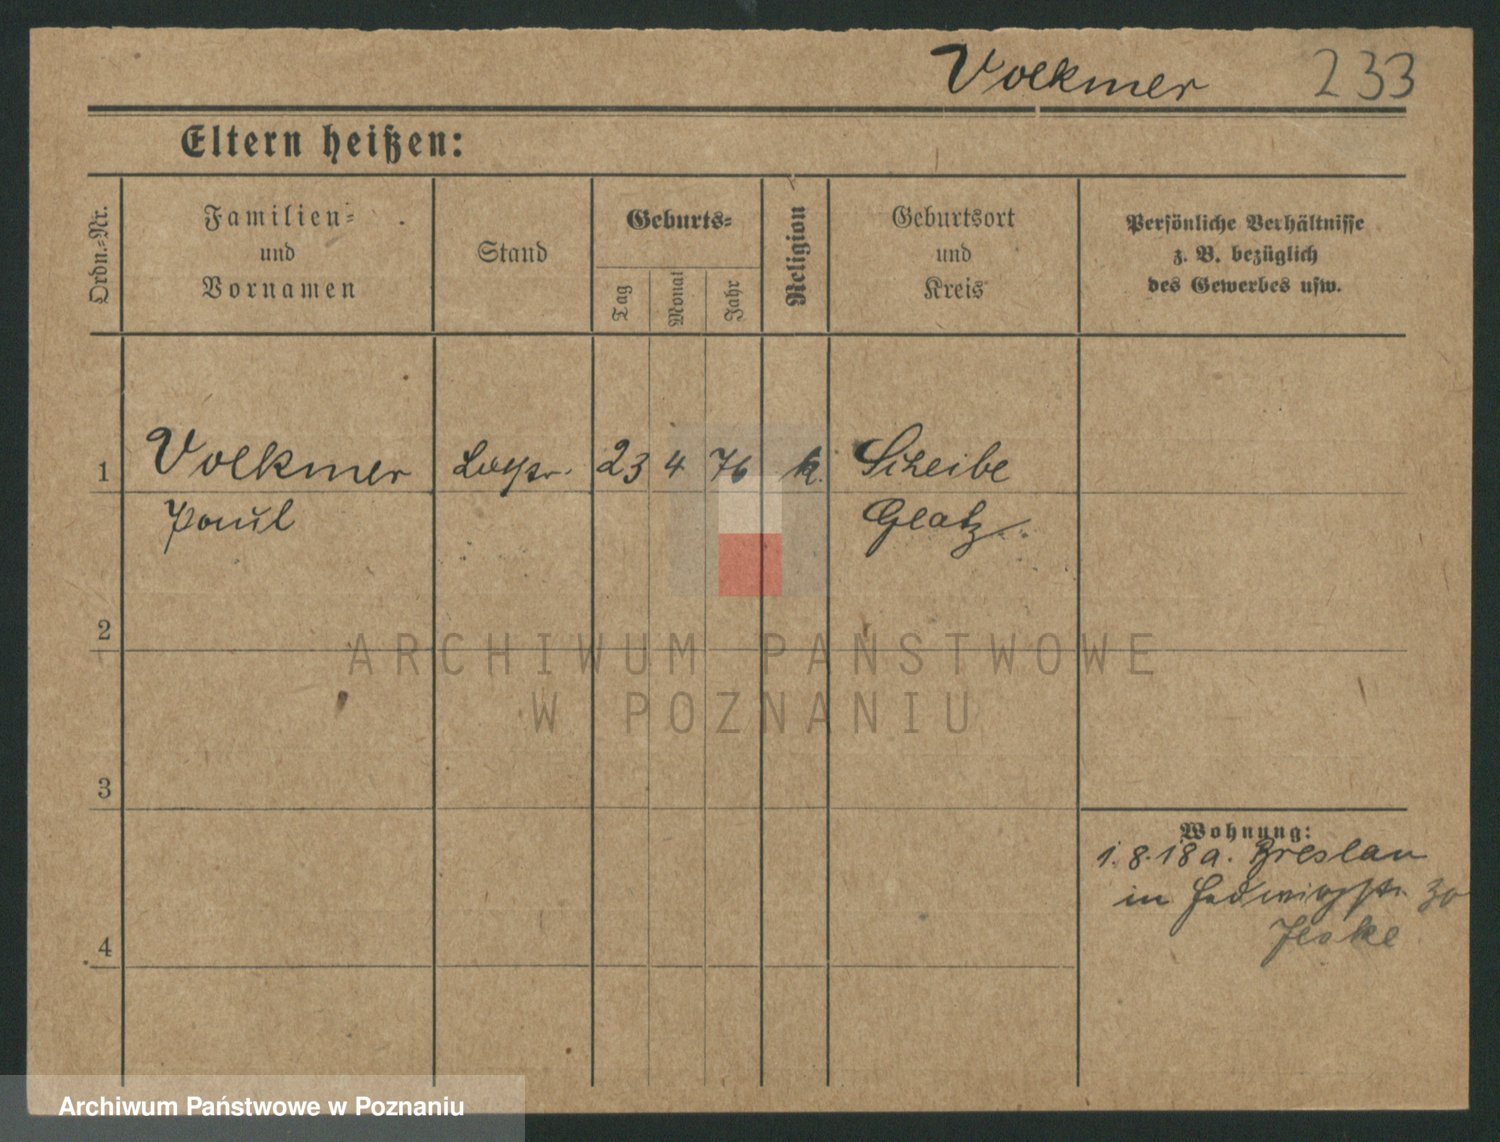 Volkmer 233
Eltern heißen:
Ordn.-Nr.
Familien-
und
Vornamen
Stand
Geburts-
Tag
Monat
Jahr
Religion
Geburtsort
und
Kreis
Persönliche Verhältnisse
z. B. bezüglich
des Gewerbes usw.
1 Volkmer 23 4 76 k. Scheibe
Paul Glatz
2
ARCHIWUM PAŃSTWOWE
W POZNANIU
3
Wohnung:
1.8.18 a. Breslau
in Hedwigstr. 30
Jeske
4
Archiwum Państwowe w Poznaniu